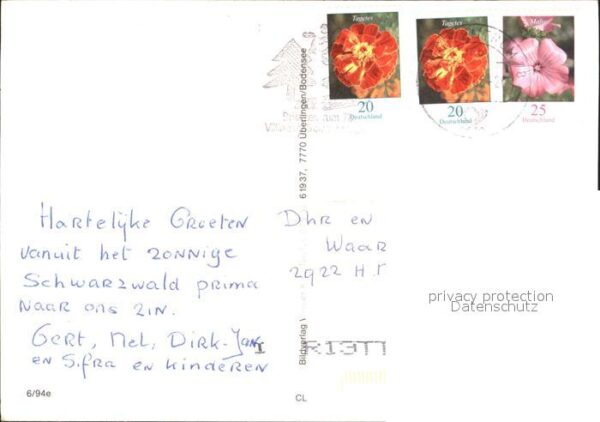 Tagetes
20
Deutschland
Tagetes
20
Deutschland
Malve
25
Deutschland
61937, 7770 Überlingen/Bodensee
Bildverlag
Hartelijke Groeten
vanuit het zonnige
Schwarzwald prima
naar ons zin.
Gert, Nel, Dirk-Jan
en Sifra en kinderen
Dhr en
Waar
2922 H.
privacy protection
Datenschutz
6/94e
CL